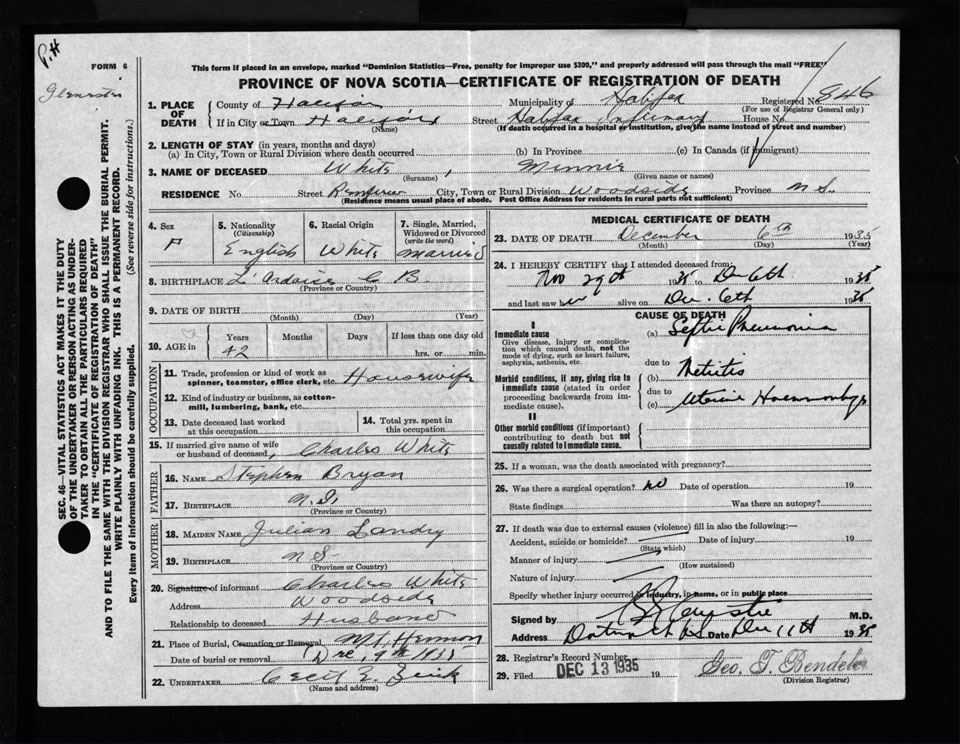 P.H
FORM 6
This form if placed in an envelope, marked "Dominion Statistics—Free, penalty for improper use $300," and properly addressed will pass through the mail "FREE"
PROVINCE OF NOVA SCOTIA—CERTIFICATE OF REGISTRATION OF DEATH
SEC. 46—VITAL STATISTICS ACT MAKES IT THE DUTY
OF THE UNDERTAKER OR PERSON ACTING AS UNDER-
TAKER TO OBTAIN ALL THE PARTICULARS REQUIRED
IN THE "CERTIFICATE OF REGISTRATION OF DEATH"
AND TO FILE THE SAME WITH THE DIVISION REGISTRAR WHO SHALL ISSUE THE BURIAL PERMIT.
WRITE PLAINLY WITH UNFADING INK. THIS IS A PERMANENT RECORD.
Every item of information should be carefully supplied. (See reverse side for instructions.)
1. PLACE OF DEATH
County of Halifax Municipality of Halifax Registered No. 846
(For use of Registrar General only)
If in City or Town Halifax Street Halifax Infirmary House No.
(Name) (If death occurred in a hospital or institution, give the name instead of street and number)
2. LENGTH OF STAY (in years, months and days)
(a) In City, Town or Rural Division where death occurred (b) In Province (c) In Canada (if immigrant)
3. NAME OF DECEASED White, Minnie
(Surname) (Given name or names)
RESIDENCE No Street Renfrew City, Town or Rural Division Woodside Province N.S.
(Residence means usual place of abode. Post Office Address for residents in rural parts not sufficient)
4. Sex F
5. Nationality (Citizenship) English
6. Racial Origin White
7. Single, Married, Widowed or Divorced (write the word) Married
8. BIRTHPLACE L'Ardoise C B.
(Province or Country)
9. DATE OF BIRTH
(Month) (Day) (Year)
10. AGE in Years 42 Months Days If less than one day old hrs. or min.
OCCUPATION
11. Trade, profession or kind of work as spinner, teamster, office clerk, etc. Housewife
12. Kind of industry or business, as cotton-mill, lumbering, bank, etc.
13. Date deceased last worked at this occupation
14. Total yrs. spent in this occupation
15. If married give name of wife or husband of deceased, Charles White
FATHER
16. NAME Stephen Bryan
17. BIRTHPLACE N.S.
(Province or Country)
MOTHER
18. MAIDEN NAME Julian Landry
19. BIRTHPLACE N S
(Province or Country)
20. Signature of informant Charles White
Address Woodside
Relationship to deceased Husband
21. Place of Burial, Cremation or Removal Mt. Hermon
Date of burial or removal Dec. 9th 1935
22. UNDERTAKER Cecil E. Zink
(Name and address)
MEDICAL CERTIFICATE OF DEATH
23. DATE OF DEATH December 6th 1935
(Month) (Day) (Year)
24. I HEREBY CERTIFY that I attended deceased from:
Nov 29th 1935 to Dec 6th 1935
and last saw her alive on Dec. 6th 1935
CAUSE OF DEATH
I
Immediate cause
Give disease, injury or complication which caused death, not the mode of dying, such as heart failure, asphyxia, asthenia, etc.
(a) Septic Pneumonia
due to
Morbid conditions, if any, giving rise to immediate cause (stated in order proceeding backwards from immediate cause).
(b) Metritis
due to
(c) Uterine Haemorrhage
II
Other morbid conditions (if important) contributing to death but not causally related to immediate cause.
25. If a woman, was the death associated with pregnancy?
26. Was there a surgical operation? no Date of operation 19
State findings Was there an autopsy?
27. If death was due to external causes (violence) fill in also the following:—
Accident, suicide or homicide? Date of injury 19
(State which)
Manner of injury
(How sustained)
Nature of injury
Specify whether injury occurred in industry, in home, or in public place
Signed by M.D.
Address Date Dec 11th 1935
28. Registrar's Record Number
29. Filed DEC 13 1935 19 Geo. T. Bendeler
(Division Registrar)